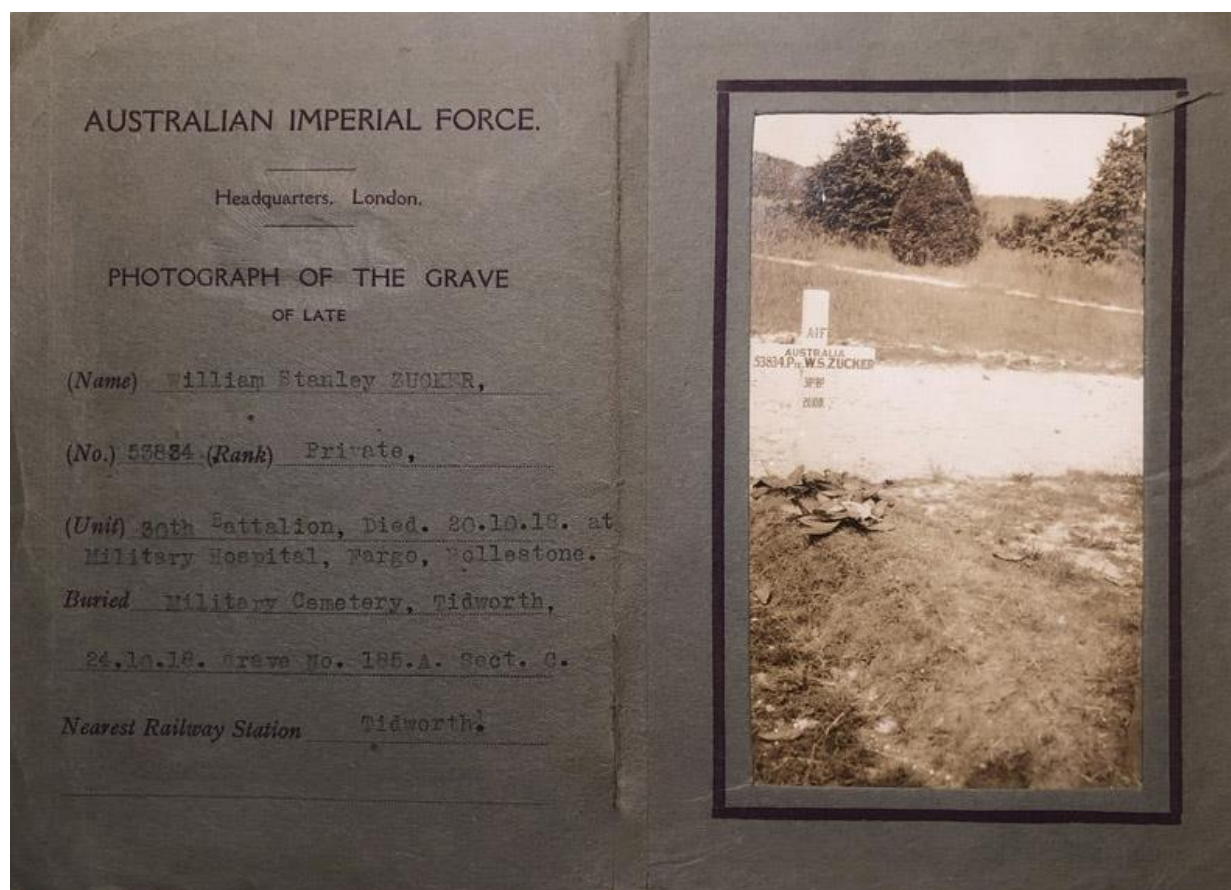 AUSTRALIAN IMPERIAL FORCE.
Headquarters, London.
PHOTOGRAPH OF THE GRAVE
OF LATE
(Name) William Stanley ZUCKER,
(No.) 53834 (Rank) Private,
(Unit) 30th Battalion, Died. 20.10.18. at
Military Hospital, Fargo, Rollestone.
Buried Military Cemetery, Tidworth,
24.10.18. Grave No. 185.A. Sect. C.
Nearest Railway Station Tidworth.
AIF
AUSTRALIA
53834 Pte W.S. ZUCKER